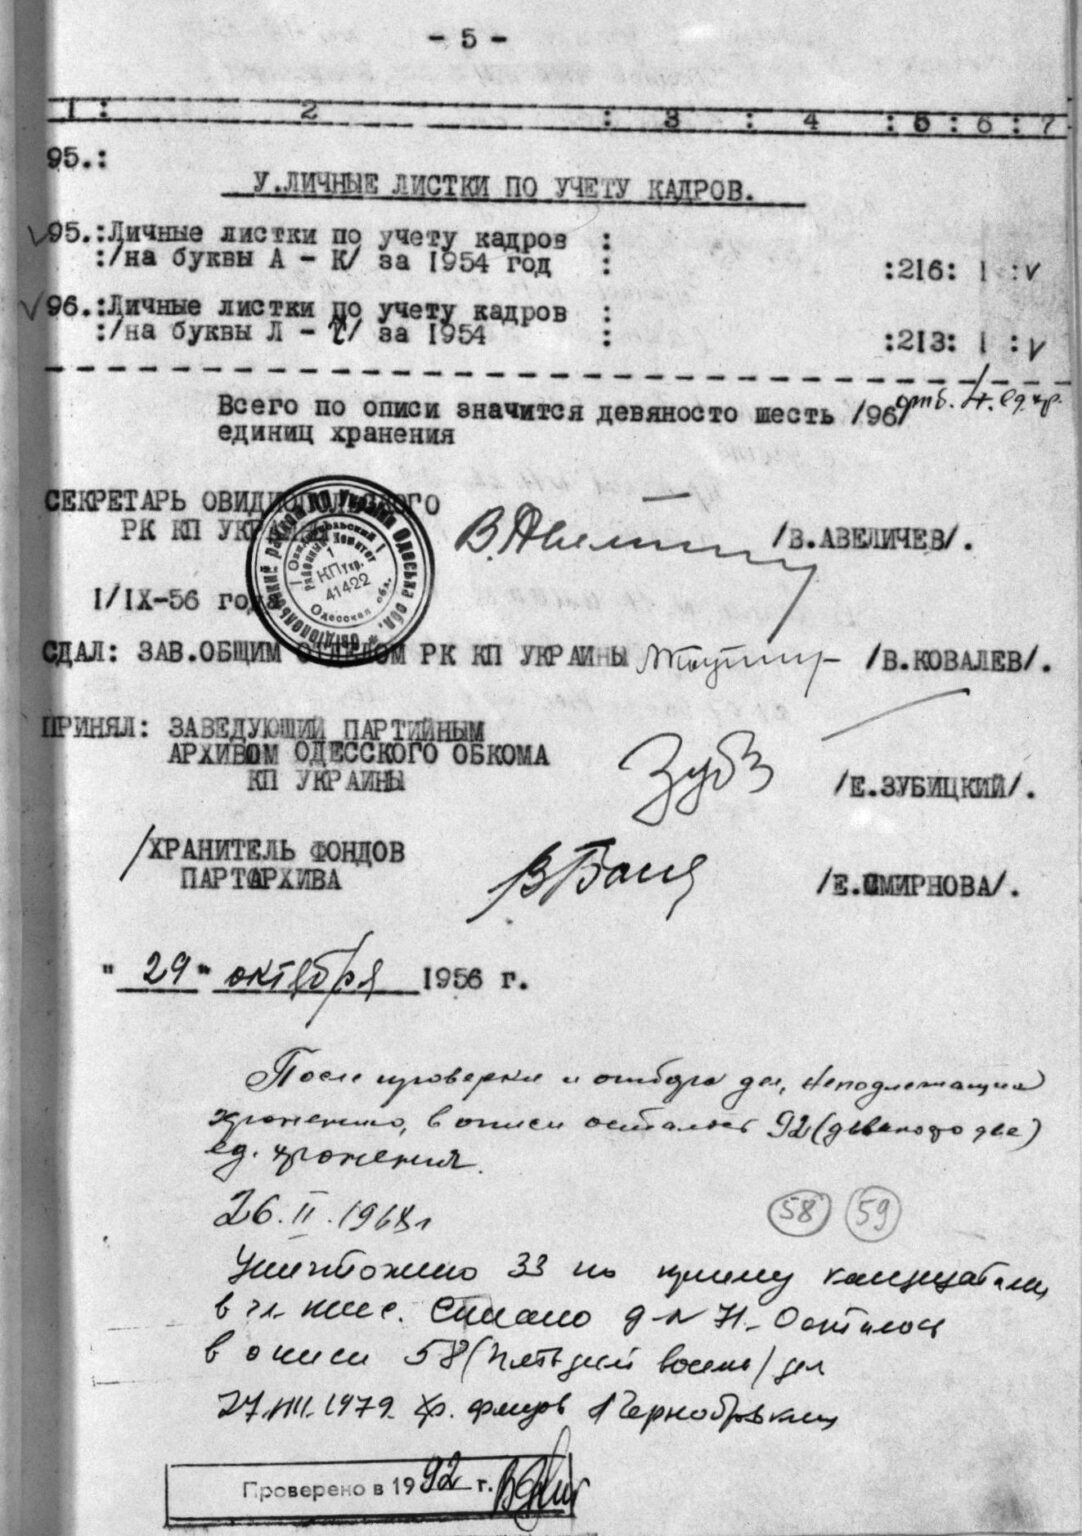 - 5 -
1 : 2 : 3 : 4 : 5 : 6 : 7
95.:
У.ЛИЧНЫЕ ЛИСТКИ ПО УЧЕТУ КАДРОВ.
√95.:Личные листки по учету кадров :
:/на буквы А - К/ за 1954 год : :216: 1 :√
√96.:Личные листки по учету кадров :
:/на буквы Л - / за 1954 : :213: 1 :√
Всего по описи значится девяносто шесть /96/
единиц хранения
СЕКРЕТАРЬ ОВИДИОПОЛЬСКОГО
РК КП УКРАИНЫ /В.АВЕЛИЧЕВ/.
Районный Комитет
КП Укр.
41422
Одесская обл.
1/IX-56 года
СДАЛ: ЗАВ.ОБЩИМ ОТДЕЛОМ РК КП УКРАИНЫ /В.КОВАЛЕВ/.
ПРИНЯЛ: ЗАВЕДУЮЩИЙ ПАРТИЙНЫМ
АРХИВОМ ОДЕССКОГО ОБКОМА
КП УКРАИНЫ Зуб /Е.ЗУБИЦКИЙ/.
/ХРАНИТЕЛЬ ФОНДОВ
ПАРТАРХИВА /Е.СМИРНОВА/.
"29" октября 1956 г.
После проверки и отбора дел, неподлежащих
хранению, в описи осталось 92 (девяносто две)
ед. хранения.
26.II.196 г
58 59
Уничтожено 33 по приему кандидатами
в чл. кпсс. Списано д-л 71. Осталось
в описи 58 (пятьдесят восемь) дел
27.VIII.1979. Хр. фондов
Проверено в 1992 г.